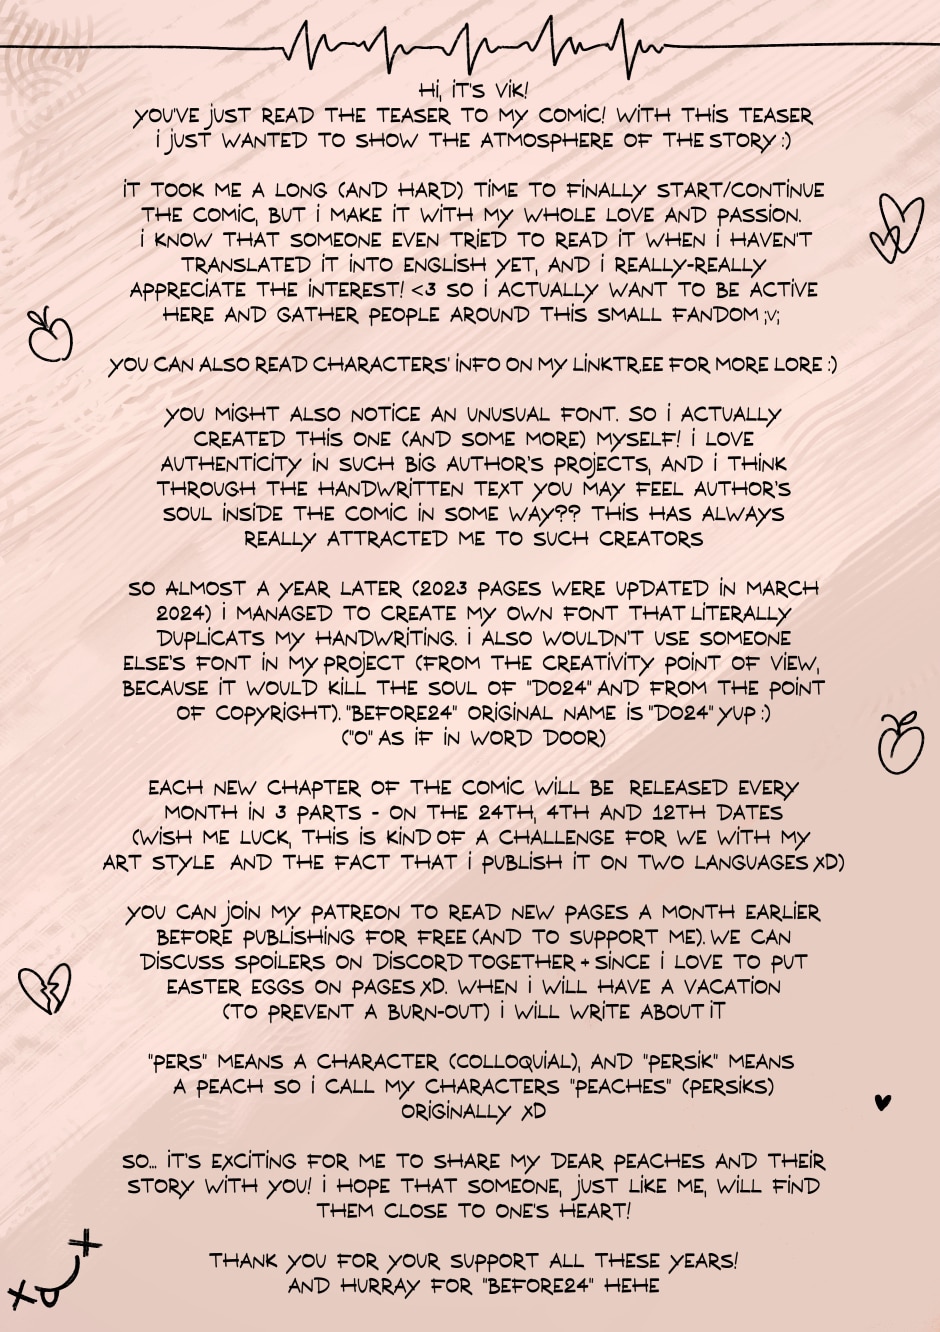 Hi, iT'S ViK!
YOU'VE jUST READ THE TEASER TO MY COMiC! WiTH THiS TEASER
i jUST WANTED TO SHOW THE ATMOSPHERE OF THE STORY :)
iT TOOK ME A LONG (AND HARD) TiME TO FiNALLY START/CONTiNUE
THE COMiC, BUT i MAKE iT WiTH MY WHOLE LOVE AND PASSiON.
i KNOW THAT SOMEONE EVEN TRiED TO READ iT WHEN i HAVEN'T
TRANSLATED iT iNTO ENGLiSH YET, AND i REALLY-REALLY
APPRECiATE THE iNTEREST! <3 SO i ACTUALLY WANT TO BE ACTiVE
HERE AND GATHER PEOPLE AROUND THiS SMALL FANDOM ;v;
YOU CAN ALSO READ CHARACTERS' iNFO ON MY LiNKTR.EE FOR MORE LORE :)
YOU MiGHT ALSO NOTiCE AN UNUSUAL FONT. SO i ACTUALLY
CREATED THiS ONE (AND SOME MORE) MYSELF! i LOVE
AUTHENTiCiTY iN SUCH BiG AUTHOR'S PROjECTS, AND i THiNK
THROUGH THE HANDWRiTTEN TEXT YOU MAY FEEL AUTHOR'S
SOUL iNSiDE THE COMiC iN SOME WAY?? THiS HAS ALWAYS
REALLY ATTRACTED ME TO SUCH CREATORS
SO ALMOST A YEAR LATER (2023 PAGES WERE UPDATED iN MARCH
2024) i MANAGED TO CREATE MY OWN FONT THAT LiTERALLY
DUPLiCATS MY HANDWRiTiNG. i ALSO WOULDN'T USE SOMEONE
ELSE'S FONT iN MY PROjECT (FROM THE CREATiViTY POiNT OF ViEW,
BECAUSE iT WOULD KiLL THE SOUL OF "DO24" AND FROM THE POiNT
OF COPYRiGHT). "BEFORE24" ORiGiNAL NAME iS "DO24" YUP :)
("O" AS iF iN WORD DOOR)
EACH NEW CHAPTER OF THE COMiC WiLL BE RELEASED EVERY
MONTH iN 3 PARTS - ON THE 24TH, 4TH AND 12TH DATES
(WiSH ME LUCK, THiS iS KiND OF A CHALLENGE FOR WE WiTH MY
ART STYLE AND THE FACT THAT i PUBLiSH iT ON TWO LANGUAGES XD)
YOU CAN jOiN MY PATREON TO READ NEW PAGES A MONTH EARLiER
BEFORE PUBLiSHiNG FOR FREE (AND TO SUPPORT ME). WE CAN
DiSCUSS SPOiLERS ON DiSCORD TOGETHER + SiNCE i LOVE TO PUT
EASTER EGGS ON PAGES XD. WHEN i WiLL HAVE A VACATiON
(TO PREVENT A BURN-OUT) i WiLL WRiTE ABOUT iT
"PERS" MEANS A CHARACTER (COLLOQUiAL), AND "PERSiK" MEANS
A PEACH SO i CALL MY CHARACTERS "PEACHES" (PERSiKS)
ORiGiNALLY XD
SO... iT'S EXCiTiNG FOR ME TO SHARE MY DEAR PEACHES AND THEiR
STORY WiTH YOU! i HOPE THAT SOMEONE, jUST LiKE ME, WiLL FiND
THEM CLOSE TO ONE'S HEART!
THANK YOU FOR YOUR SUPPORT ALL THESE YEARS!
AND HURRAY FOR "BEFORE24" HEHE